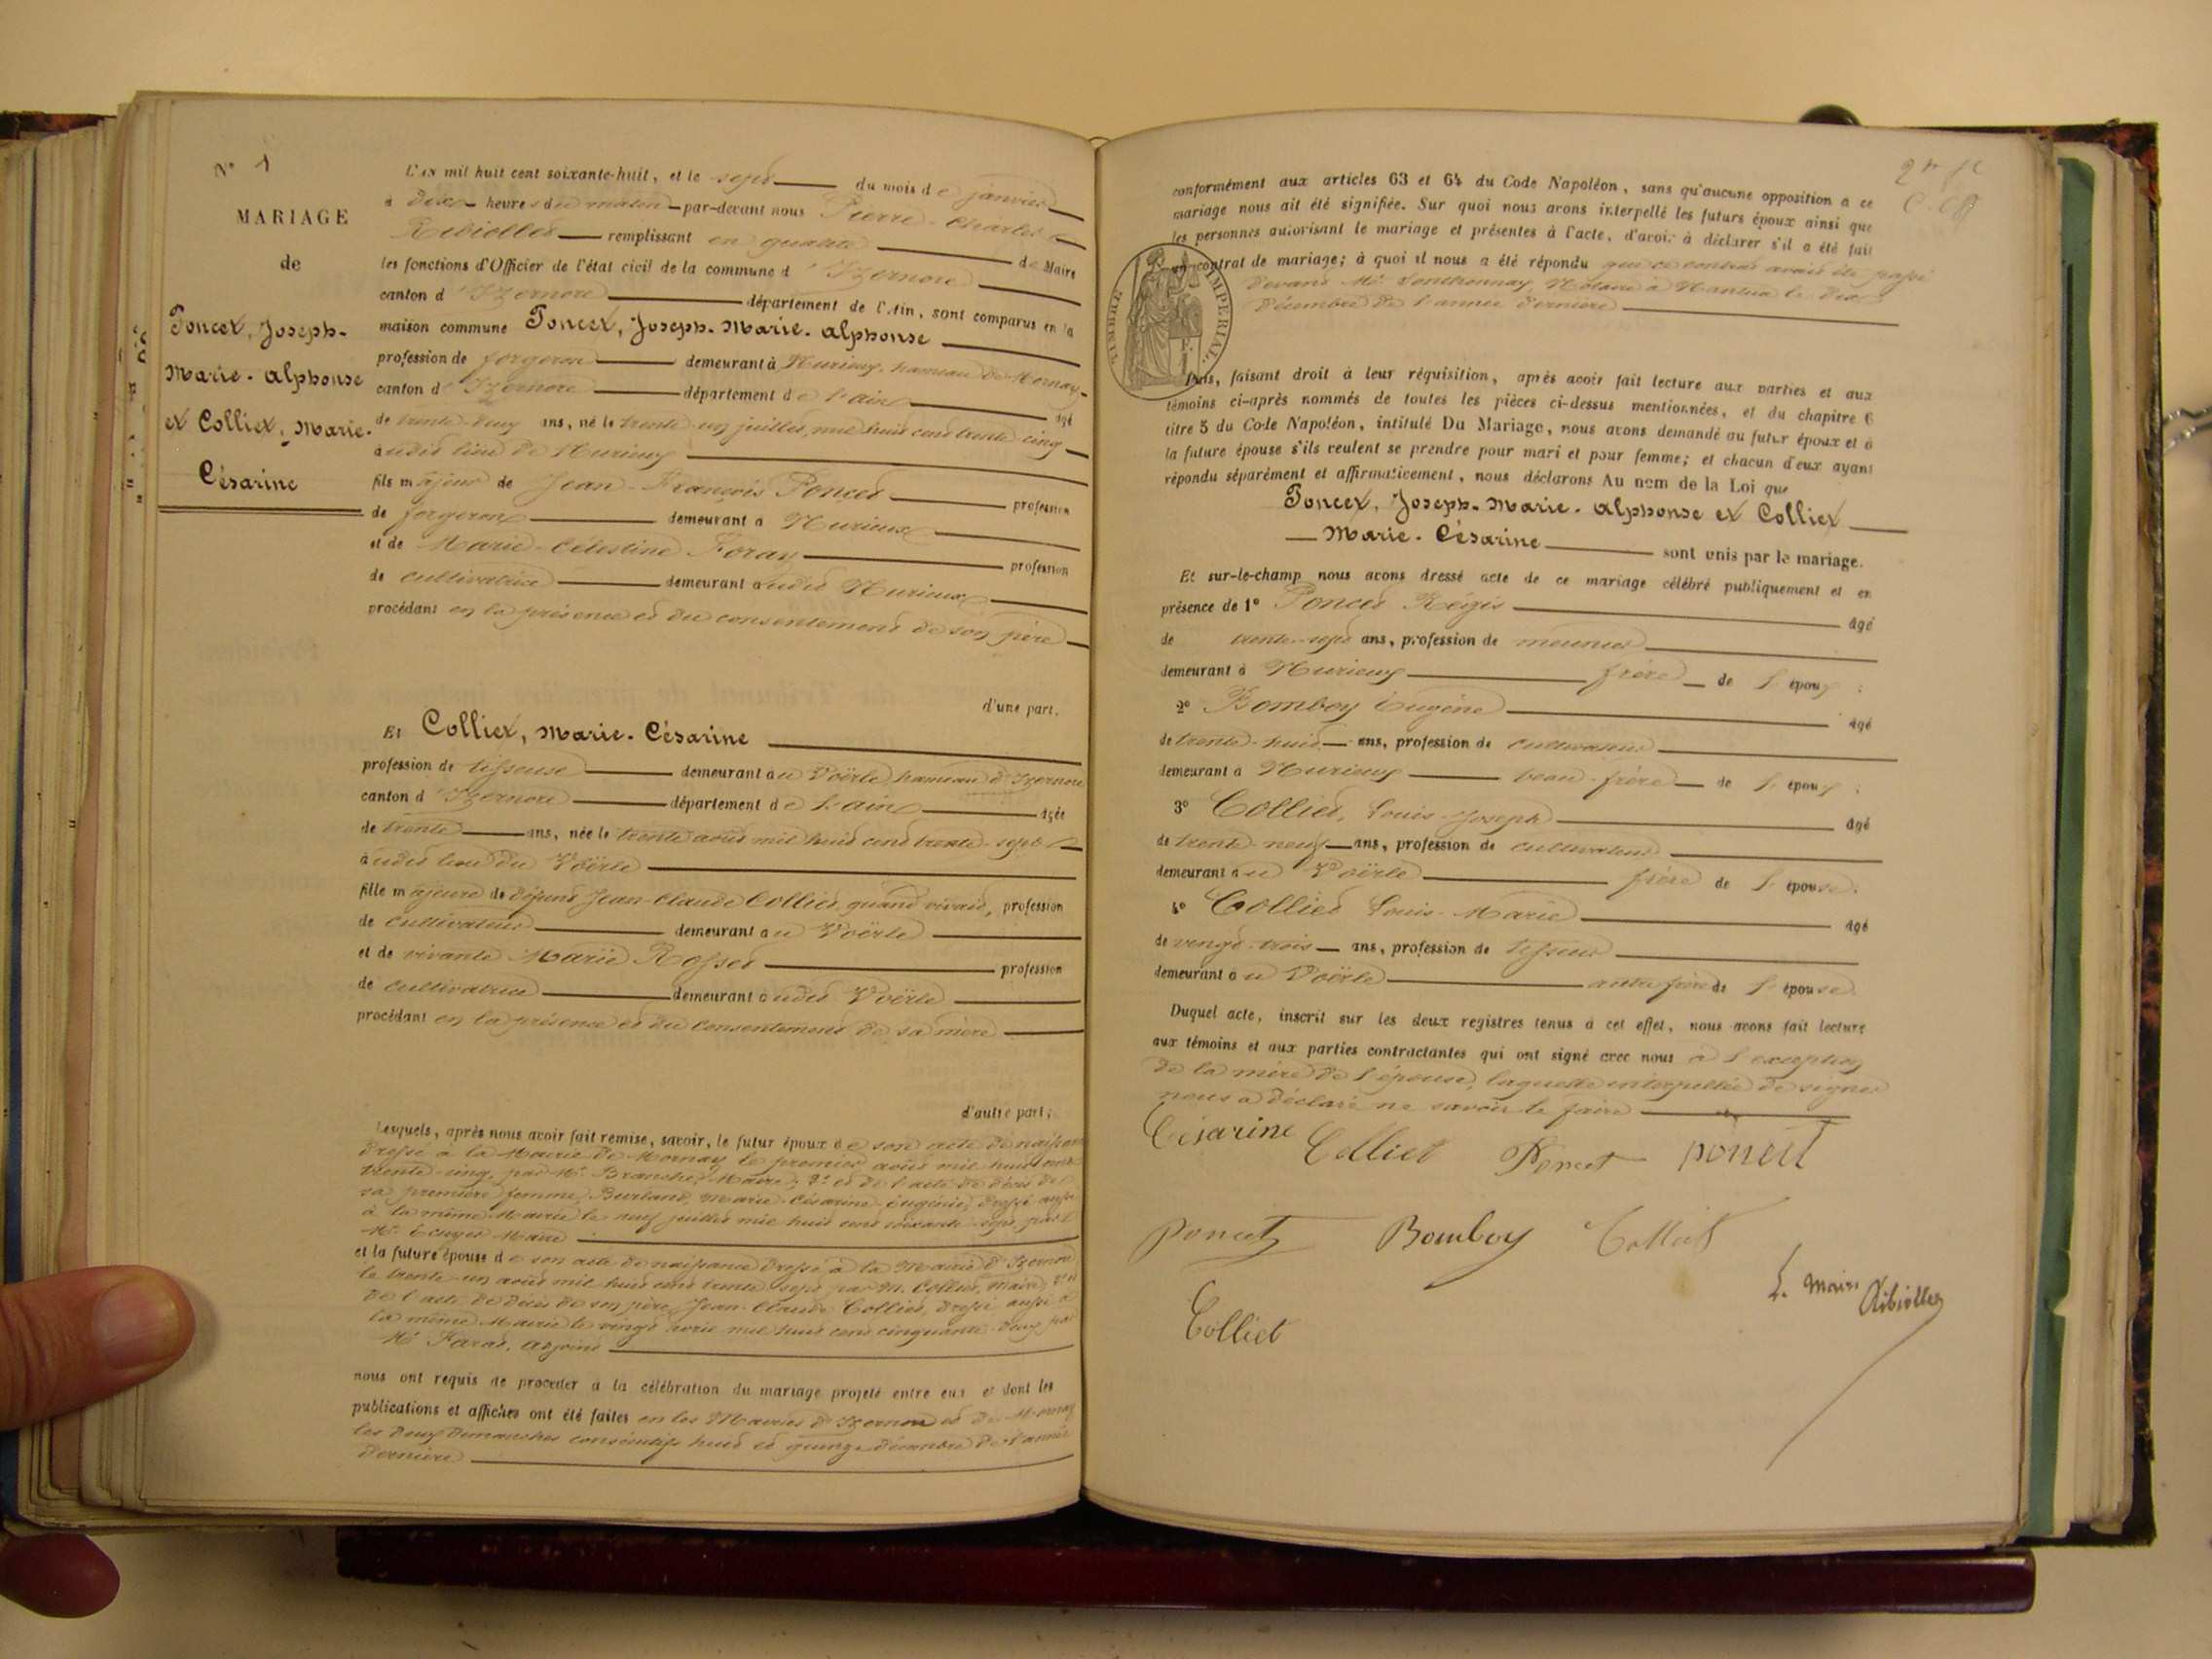 N° 1
MARIAGE
de
Poncet, Joseph-
Marie-Alphonse
et Colliet, Marie-
Césarine
L'AN mil huit cent soixante-huit, et le sept du mois de janvier
à dix heures du matin par-devant nous Pierre-Charles
Ribiollet remplissant en qualité de Maire
les fonctions d'Officier de l'état civil de la commune d'Izernore
canton d'Izernore département de l'Ain, sont comparus en la
maison commune Poncet, Joseph-Marie-Alphonse
profession de forgeron demeurant à Nurieux, hameau de Mornay
canton d'Izernore département de l'Ain âgé
de trente-deux ans, né le trente-un juillet, mil huit cent trente-cinq
audit lieu de Nurieux
fils majeur de Jean-François Poncet profession
de forgeron demeurant à Nurieux
et de Marie-Célestine Foray profession
de cultivatrice demeurant audit Nurieux
procédant en la présence et du consentement de son père
d'une part.
Et Colliet, Marie-Césarine
profession de tisseuse demeurant au Voërle, hameau d'Izernore
canton d'Izernore département de l'Ain âgée
de trente ans, née le trente août mil huit cent trente-sept
audit lieu du Voërle
fille majeure de défunt Jean-Claude Colliet, quand vivait, profession
de cultivateur demeurant au Voërle
et de vivante Marie Rosset profession
de cultivatrice demeurant audit Voërle
procédant en la présence et du consentement de sa mère
d'autre part;
Lesquels, après nous avoir fait remise, savoir, le futur époux de son acte de naissance
dressé à la Mairie de Mornay le premier août mil huit cent
trente-cinq, par Mr Branche, Maire; 2° et de l'acte de décès de
sa première femme, Burland, Marie-Césarine-Eugénie, dressé aussi
à la même Mairie le neuf juillet mil huit cent soixante-sept, par
Mr Ecuyer Maire
et la future épouse de son acte de naissance dressé à la Mairie d'Izernore
le trente-un août mil huit cent trente-sept par M. Colliet, Maire; 2° et
de l'acte de décès de son père, Jean-Claude Colliet, dressé aussi à
la même Mairie le vingt avril mil huit cent cinquante-deux par
Mr Farat, adjoint
nous ont requis de procéder à la célébration du mariage projeté entre eux et dont les
publications et affiches ont été faites en les Mairies d'Izernore et de Mornay
les deux dimanches consécutifs huit et quinze décembre de l'année
dernière
conformément aux articles 63 et 64 du Code Napoléon, sans qu'aucune opposition à ce
mariage nous ait été signifiée. Sur quoi nous avons interpellé les futurs époux ainsi que
les personnes autorisant le mariage et présentes à l'acte, d'avoir à déclarer s'il a été fait
un contrat de mariage; à quoi il nous a été répondu que ce contrat avait été passé
devant Me Notaire à Nantua le dix
décembre de l'année dernière
TIMBRE IMPÉRIAL
Puis, faisant droit à leur réquisition, après avoir fait lecture aux parties et aux
témoins ci-après nommés de toutes les pièces ci-dessus mentionnées, et du chapitre 6
titre 5 du Code Napoléon, intitulé Du Mariage, nous avons demandé au futur époux et à
la future épouse s'ils veulent se prendre pour mari et pour femme; et chacun d'eux ayant
répondu séparément et affirmativement, nous déclarons Au nom de la Loi que
Poncet, Joseph-Marie-Alphonse et Colliet
Marie-Césarine sont unis par le mariage.
Et sur-le-champ nous avons dressé acte de ce mariage célébré publiquement et en
présence de 1° Poncet Régis âgé
de trente-sept ans, profession de meunier
demeurant à Nurieux frère de l'époux;
2° Bomboy Eugène âgé
de trente-huit ans, profession de cultivateur
demeurant à Nurieux beau-frère de l'époux;
3° Colliet, Louis-Joseph âgé
de trente-neuf ans, profession de cultivateur
demeurant au Voërle frère de l'épouse.
4° Colliet Louis-Marie âgé
de vingt-trois ans, profession de tisseur
demeurant au Voërle autre frère de l'épouse
Duquel acte, inscrit sur les deux registres tenus à cet effet, nous avons fait lecture
aux témoins et aux parties contractantes qui ont signé avec nous à l'exception
de la mère de l'épouse, laquelle interpellée de signer
nous a déclaré ne savoir le faire
Césarine Colliet Poncet poncet
Poncet Bomboy Colliet
L. Maire Ribiollet
Colliet